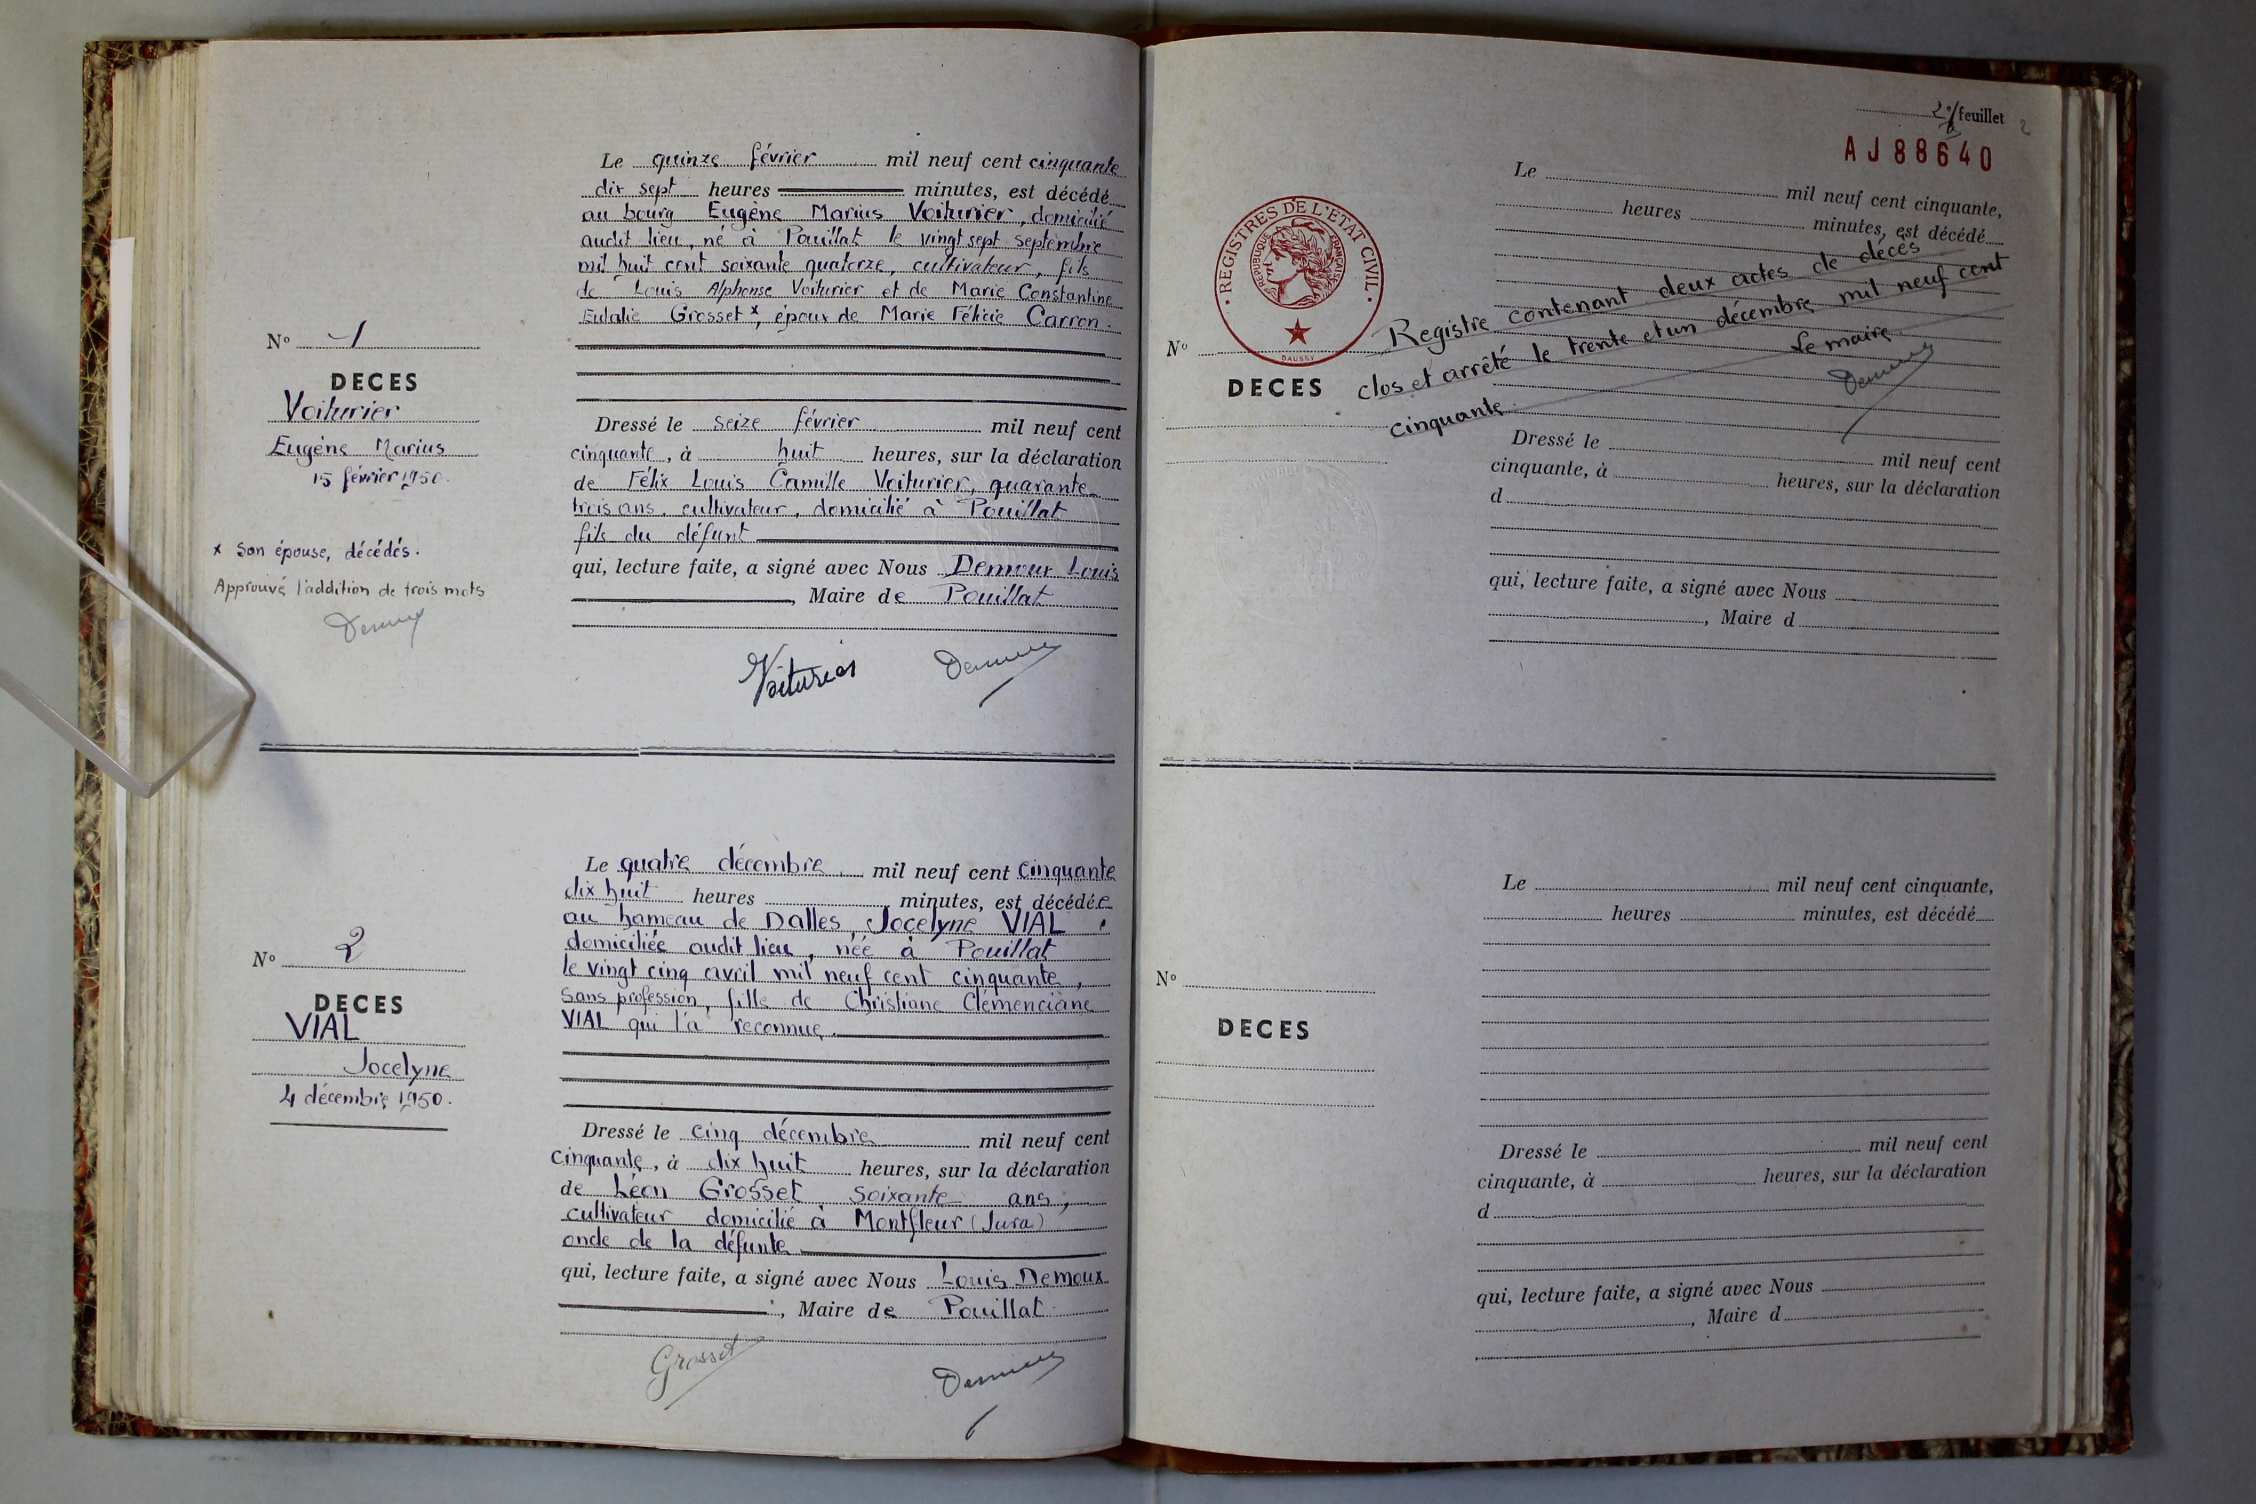 Le quinze février mil neuf cent cinquante
dix sept heures minutes, est décédé
au bourg Eugène Marius Voiturier, domicilié
audit lieu, né à Pouillat le vingt sept septembre
mil huit cent soixante quatorze, cultivateur, fils
de Louis Alphonse Voiturier et de Marie Constantine
Eulalie Grosset x, époux de Marie Félicie Carron.
N° 1
DECES
Voiturier
Eugène Marius
15 février 1950.
x son épouse, décédés.
Approuvé l'addition de trois mots
Dressé le seize février mil neuf cent
cinquante, à huit heures, sur la déclaration
de Félix Louis Camille Voiturier, quarante
trois ans, cultivateur, domicilié à Pouillat
fils du défunt
qui, lecture faite, a signé avec Nous Demoux Louis
, Maire de Pouillat
Voiturier
N° 2
DECES
VIAL
Jocelyne
4 décembre 1950.
Le quatre décembre mil neuf cent cinquante
dix huit heures minutes, est décédée
au hameau de Dalles, Jocelyne VIAL
domiciliée audit lieu, née à Pouillat
le vingt cinq avril mil neuf cent cinquante,
sans profession, fille de Christiane Clémenciane
VIAL qui l'a reconnue.
Dressé le cinq décembre mil neuf cent
cinquante, à dix huit heures, sur la déclaration
de Léon Grosset soixante ans,
cultivateur domicilié à Montfleur (Jura)
oncle de la défunte
qui, lecture faite, a signé avec Nous Louis Demoux
, Maire de Pouillat
Grosset
2e feuillet 2
AJ88640
REGISTRES DE L'ETAT CIVIL
REPUBLIQUE FRANÇAISE
DAUSSY
Le mil neuf cent cinquante,
heures minutes, est décédé
Registre contenant deux actes de décès
clos et arrêté le trente et un décembre mil neuf cent
cinquante.
Le maire
N°
DECES
Dressé le mil neuf cent
cinquante, à heures, sur la déclaration
d
qui, lecture faite, a signé avec Nous
, Maire d
Le mil neuf cent cinquante,
heures minutes, est décédé
N°
DECES
Dressé le mil neuf cent
cinquante, à heures, sur la déclaration
d
qui, lecture faite, a signé avec Nous
, Maire d